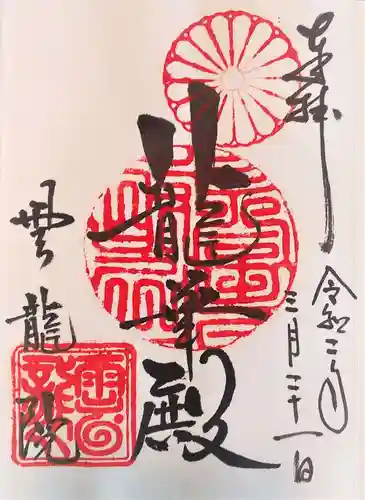 奉拝
令和二年
三月二十一日
龍華殿
雲龍院